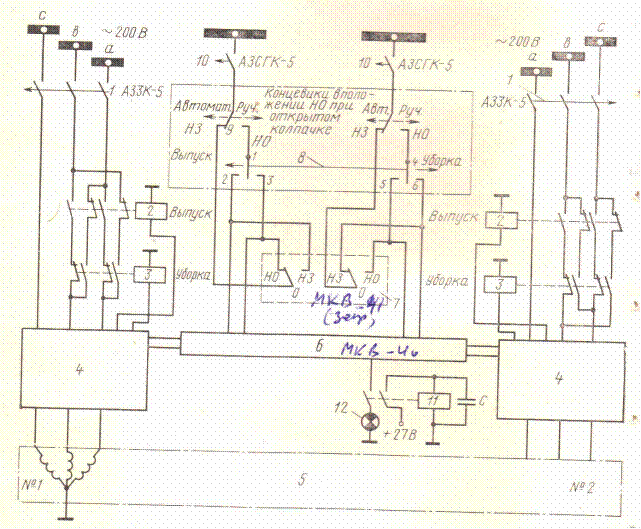 c
в
~200В
а
1 АЗЗК-5
10 АЗСГК-5
10 АЗСГК-5
~200В
с
в
а
1
АЗЗК-5
Автомат. Руч.
Концевики в положении НО при открытом колпачке
Авт. Руч.
НЗ 9 НО
НЗ НО
Выпуск 1 8 4 Уборка
2 3 5 6
2 Выпуск
Выпуск 2
3 Уборка
Уборка 3
НО 0 НЗ НЗ 0 НО
7
МКВ-41
(Запр)
4
6 МКВ-46
4
12 11 С
+27В
№1 5 №2